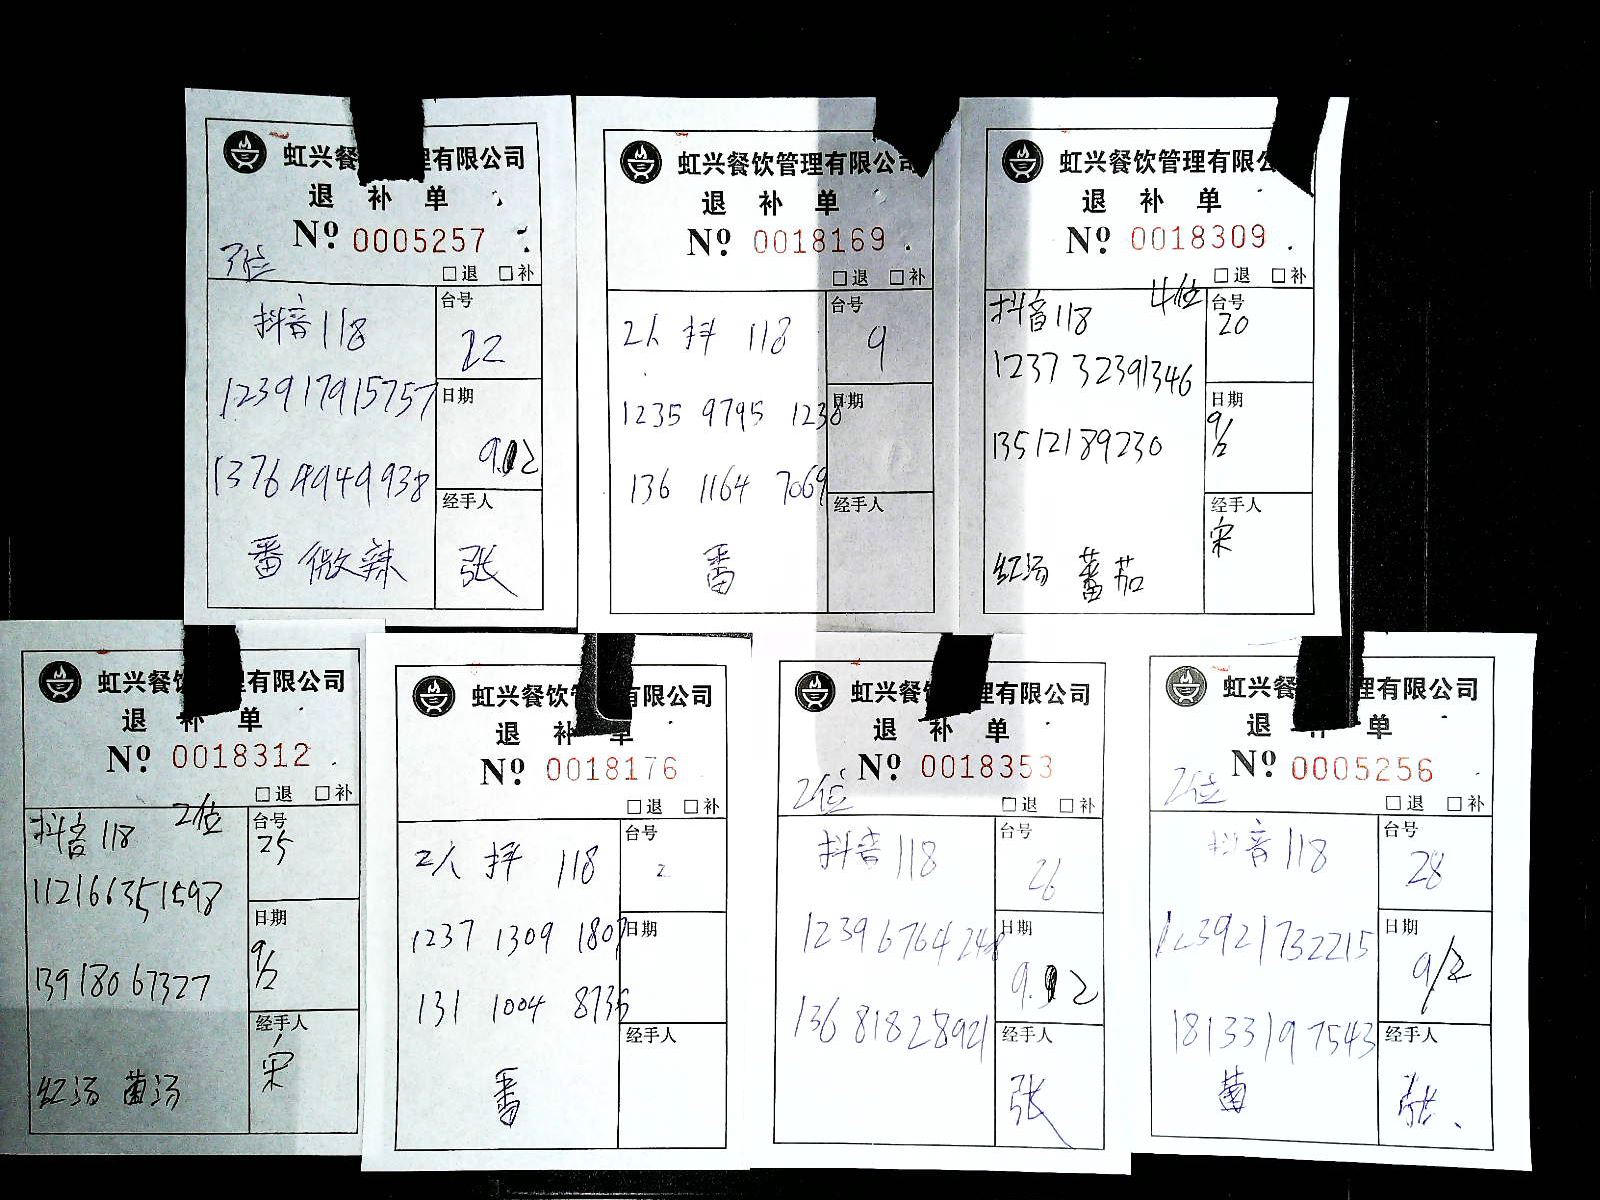 虹兴餐 理有限公司
退 补 单
No 0005257
3位
□退 □补
抖音118
台号
22
123917915757
日期
9.02
13764949938
经手人
番 微辣
张
虹兴餐饮管理有限公司
退 补 单
No 0018169
□退 □补
2人 抖 118
台号
9
1235 9795 1238
日期
136 1164 7069
经手人
番
虹兴餐饮管理有限公
退 补 单
No 0018309
□退 □补
抖音118 4位
台号
20
1237 32391346
日期
9/2
13512189230
经手人
宋
红汤 蕃茄
虹兴餐饮 有限公司
退 补 单
No 0018312
□退 □补
抖音118 2位
台号
25
112166351598
日期
9/2
13918067327
经手人
宋
红汤 菌汤
虹兴餐饮 有限公司
退 补 单
No 0018176
□退 □补
2人 抖 118
台号
2
1237 1309 1807
日期
131 1004 8735
经手人
番
虹兴餐 理有限公司
退 补 单
No 0018353
2位
□退 □补
抖音118
台号
26
12396764248
日期
9. 2
13681828921
经手人
张
虹兴餐 理有限公司
退 单
No 0005256
2位
□退 □补
抖音118
台号
28
123921732215
日期
9/2
18133197543
经手人
菌
张